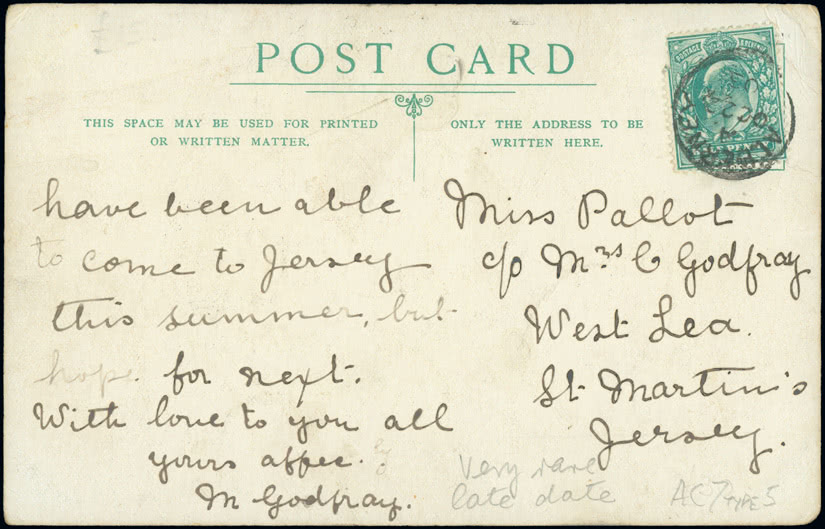 POST CARD
THIS SPACE MAY BE USED FOR PRINTED
OR WRITTEN MATTER.
ONLY THE ADDRESS TO BE
WRITTEN HERE.
POSTAGE
have been able
to come to Jersey
this summer, but
hope for next.
With love to you all
yours affec.ly
M Godfray.
Miss Pallot
c/o Mrs C Godfray
West Lea.
St Martin's
Jersey.
Very rare
late date
AC7 TYPE 5